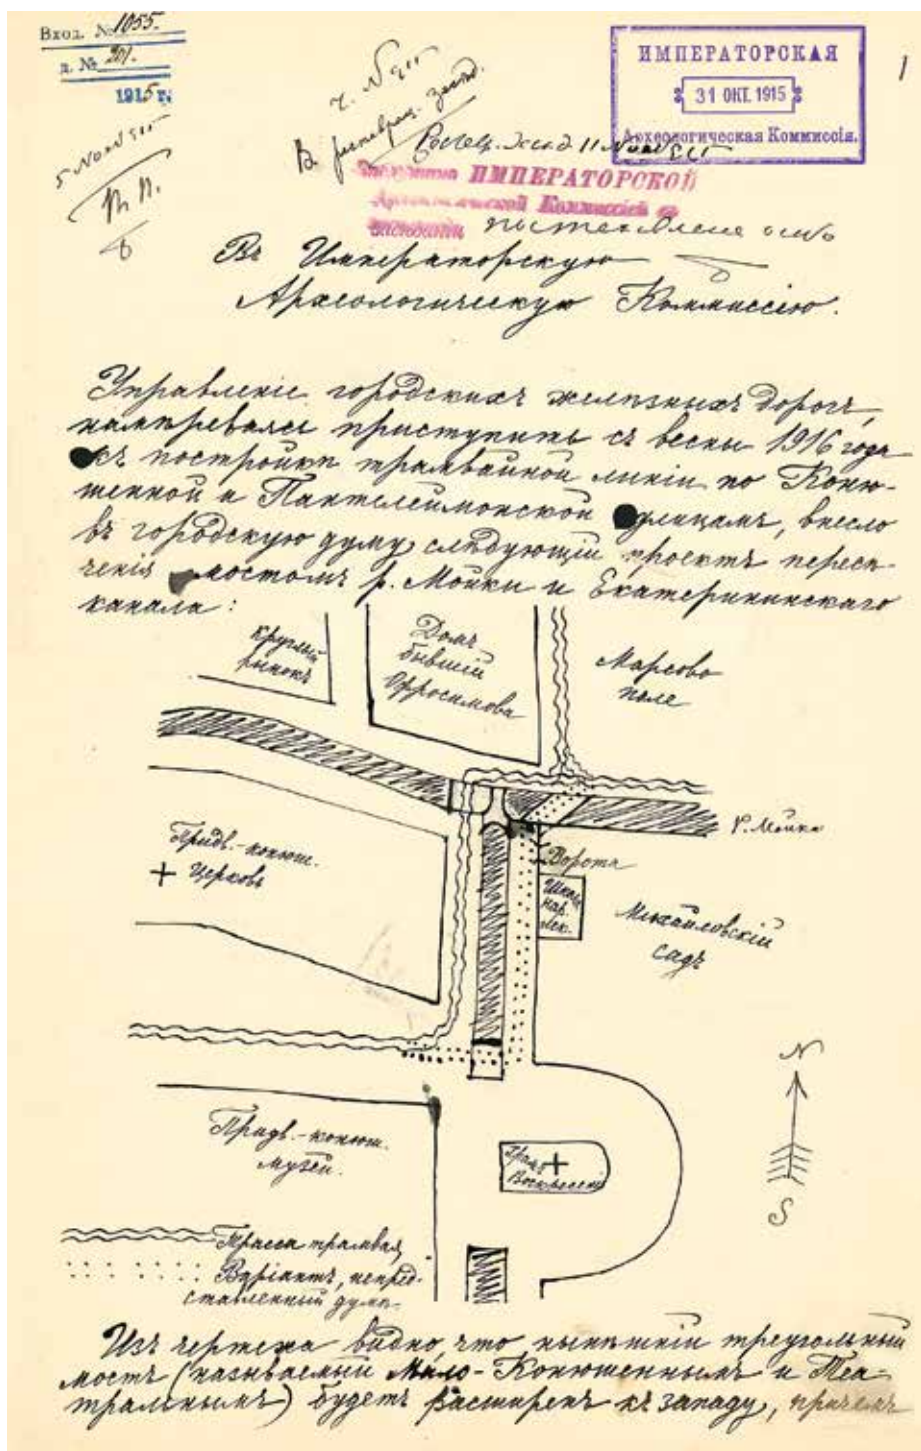 Вход. № 1055.
д. № 201.
1915 г.
5 Nov 915
ч. N 915
В реставрац. засед.
ИМПЕРАТОРСКАЯ
31 ОКТ. 1915
Археологическая Коммиссія.
1
засед. 11 Nov 915
ИМПЕРАТОРСКОЙ
Археологической Коммиссіей въ
засѣданіи постановлено
Въ Императорскую
Археологическую Коммиссію.
Управленіе городскихъ желѣзныхъ дорогъ,
намѣреваясь приступить съ весны 1916 года
къ постройкѣ трамвайной линіи по Коню-
шенной и Пантелеймонской улицамъ, внесло
въ городскую думу слѣдующій проектъ пересѣ-
ченія мостомъ р. Мойки и Екатерининскаго
канала:
Круглый
рынокъ
Домъ
бывшій
Офросимова
Марсово
поле
р. Мойка
Придв.-конюш.
Церковь
Ворота
Школа
нар.
иск.
Михайловскій
садъ
Придв.-конюш.
музей.
Храмъ
Воскресенія
N
S
Трасса трамвая,
Варіантъ, непред-
ставленный думѣ.
Изъ чертежа видно, что нынѣшній треугольный
мостъ (называемый Мало-Конюшеннымъ и Теа-
тральнымъ) будетъ расширенъ къ западу, причемъ